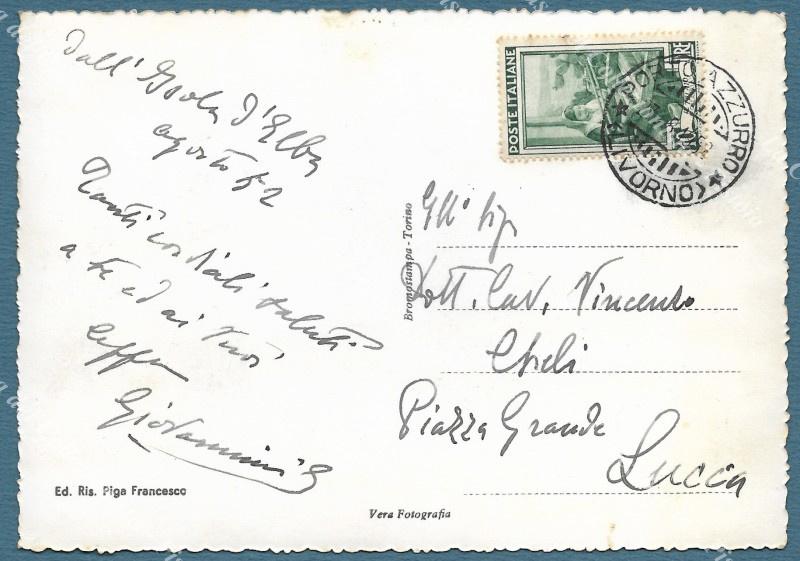 Dall'Isola d'Elba
agosto 52
Tanti cordiali saluti
a te ed ai tuoi
Giovannini
Ed. Ris. Piga Francesco
POSTE ITALIANE
LIRE
PORTO AZZURRO
(LIVORNO)
Bromostampa - Torino
Dott. Cav. Vincenzo
Piazza Grande
Lucca
Vera Fotografia